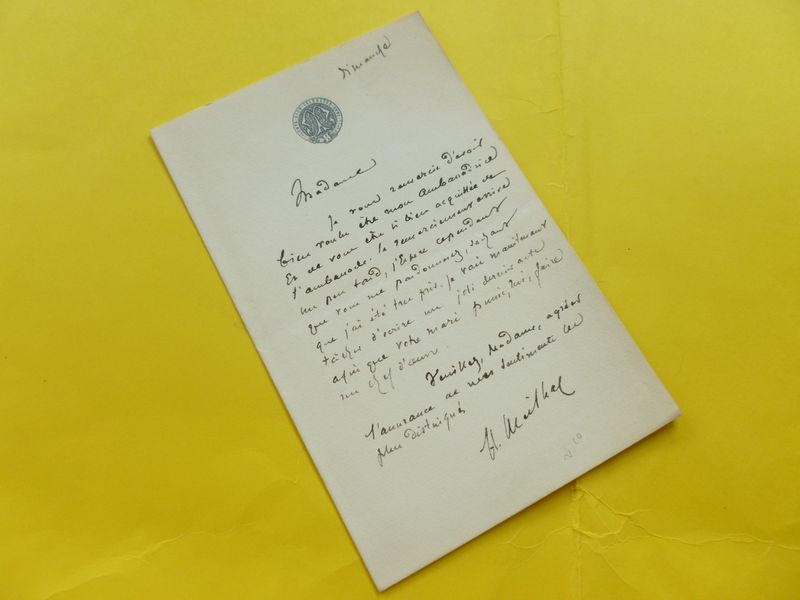 Dimanche
Madame
Je vous remercie d'avoir
bien voulu être mon ambassadrice
Et de vous être si bien acquittée de
l'ambassade. Le remerciement arrive
un peu tard, j'Espère cependant
que vous me pardonnerez, sachant
que j'ai été très pris. Je vais maintenant
tâcher d'écrire un joli dernier acte
afin que votre mari puisse, lui, faire
un chef d'œuvre.
Veuillez, Madame, agréer
l'assurance de mes sentiments les
plus distingués
H. Meilhac